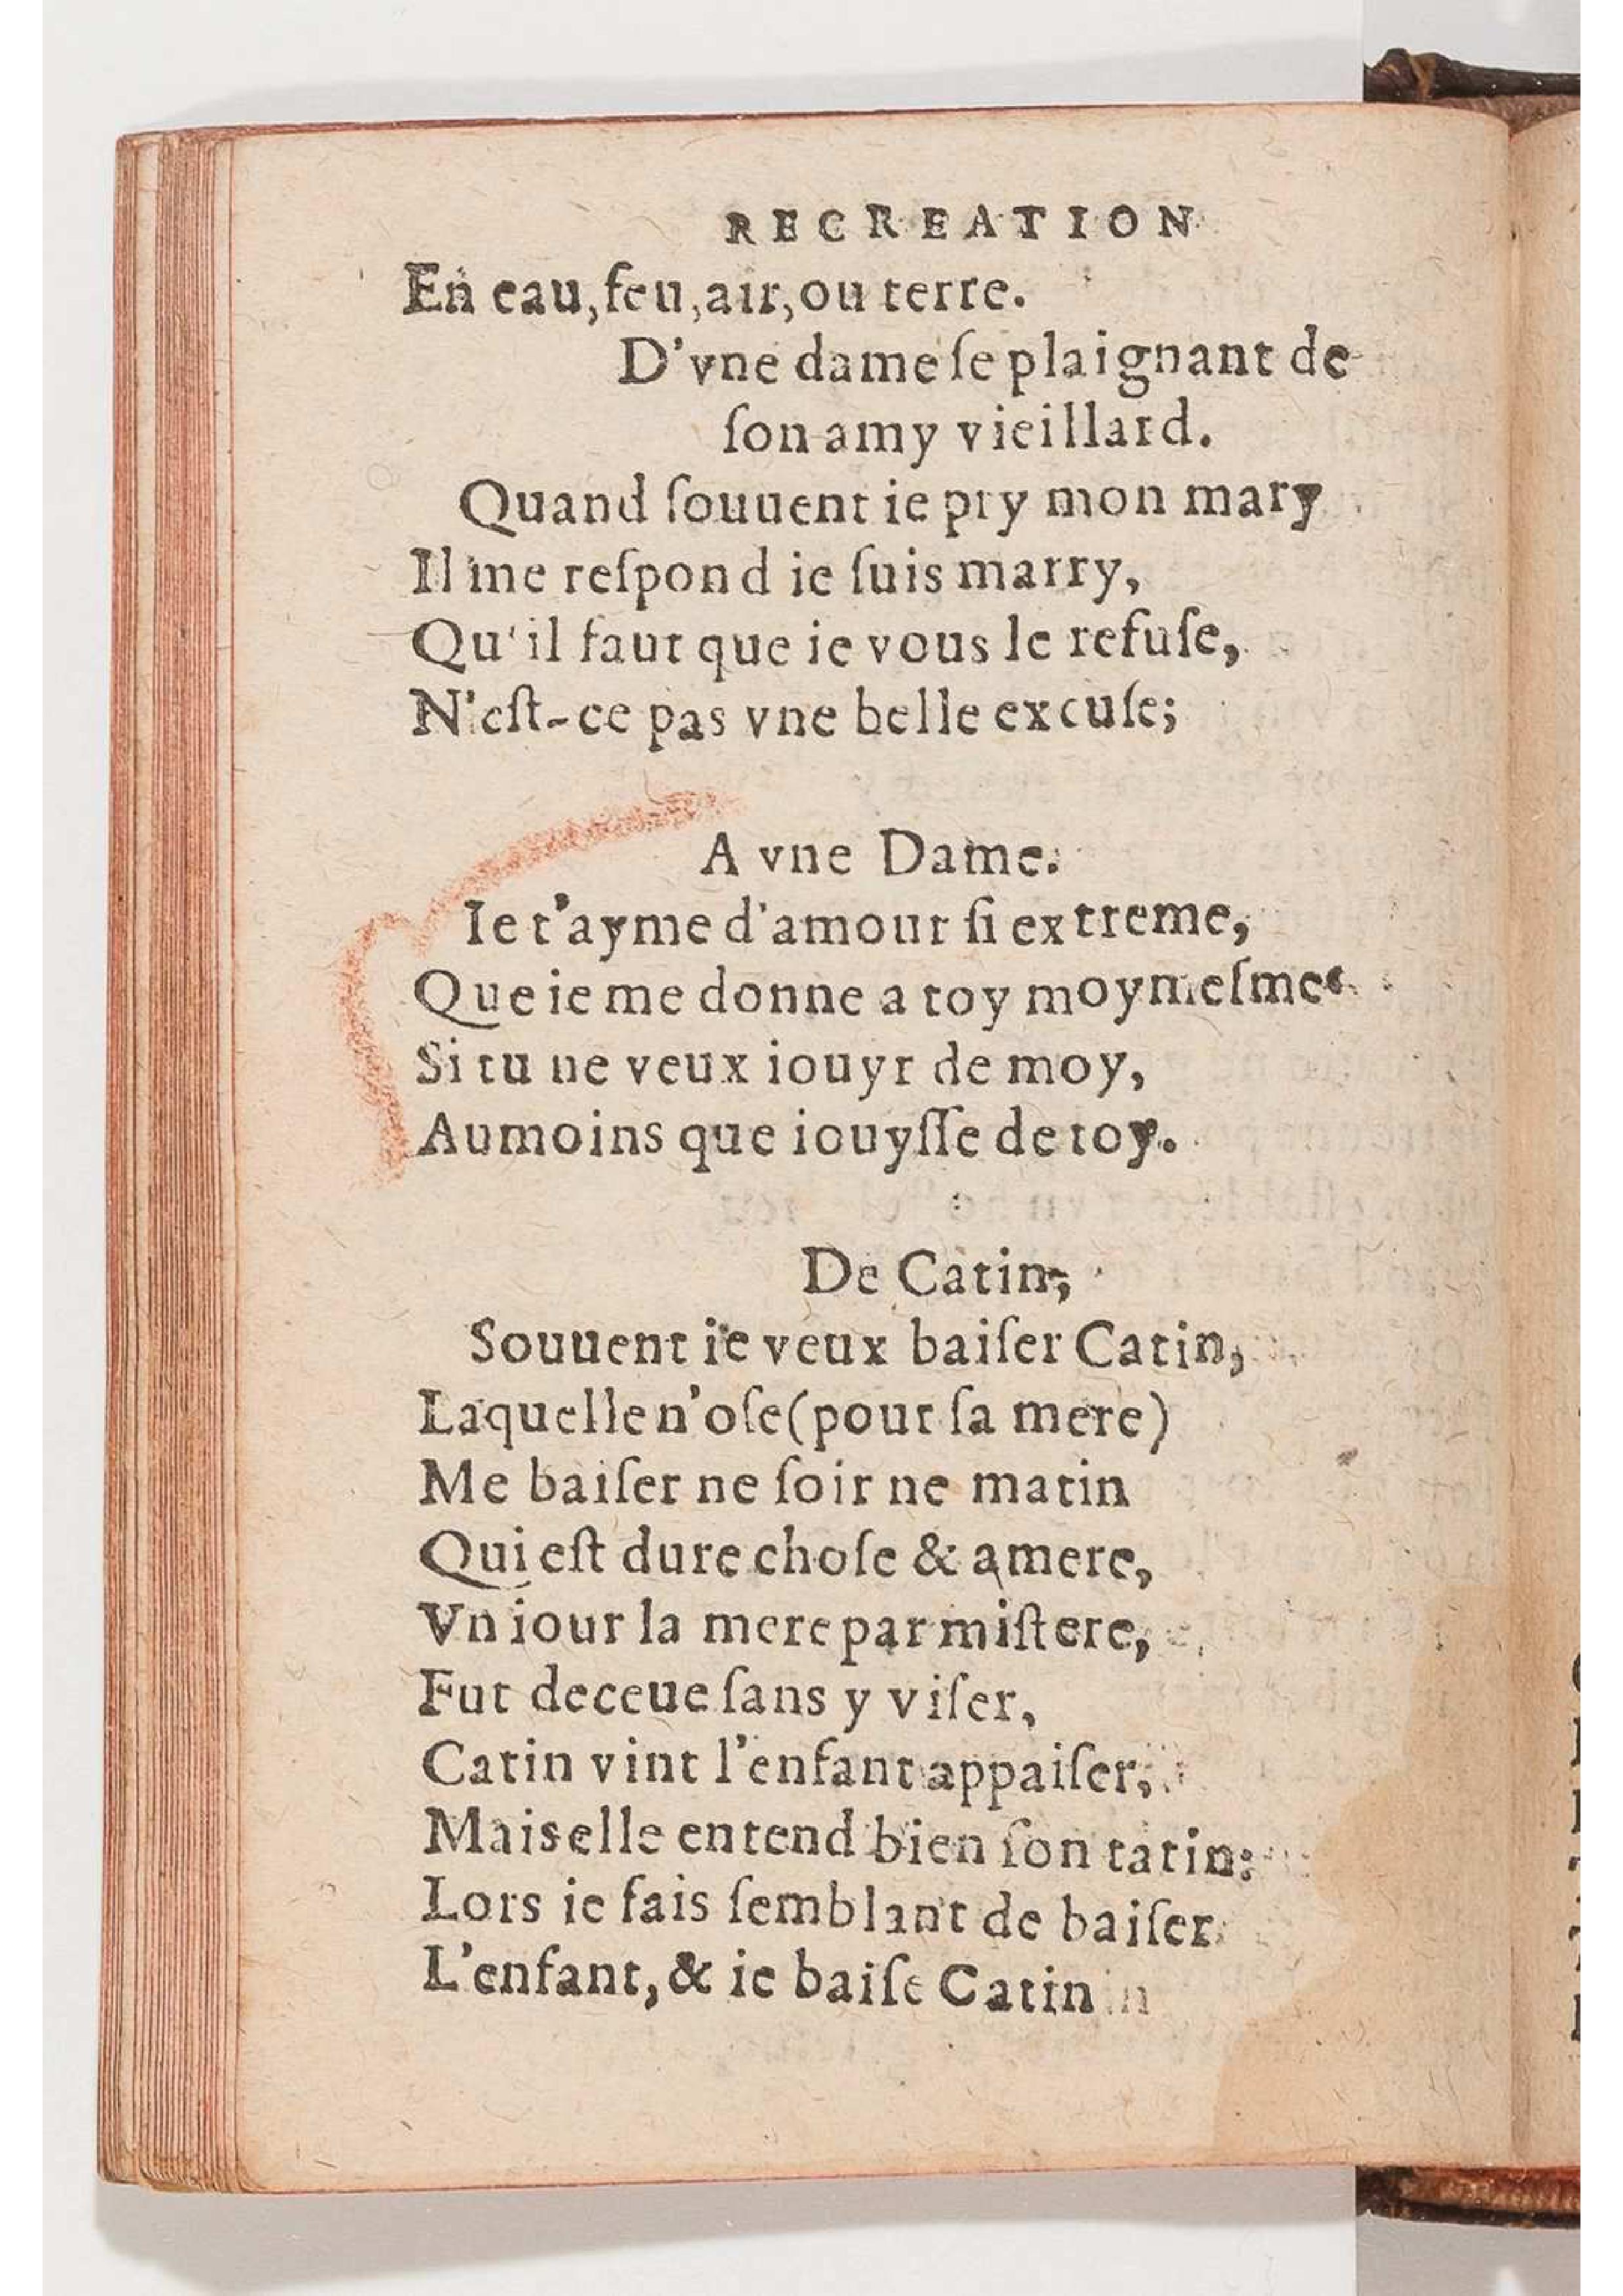 RECREATION
En eau, feu, air, ou terre.
D'vne dame ſe plaignant de
ſon amy vieillard.
Quand ſouuent ie pry mon mary
Il me reſpond ie ſuis marry,
Qu'il faut que ie vous le refuſe,
N'eſt-ce pas vne belle excuſe;
A vne Dame.
Ie t'ayme d'amour ſi extreme,
Que ie me donne a toy moymeſme.
Si tu ne veux iouyr de moy,
Aumoins que iouyſſe de toy.
De Catin,
Souuent ie veux baiſer Catin,
Laquelle n'oſe (pour ſa mere)
Me baiſer ne ſoir ne matin
Qui eſt dure choſe & amere,
Vn iour la mere par miſtere,
Fut deceue ſans y viſer,
Catin vint l'enfant appaiſer,
Mais elle entend bien ſon tatin:
Lors ie fais ſemblant de baiſer
L'enfant, & ie baiſe Catin